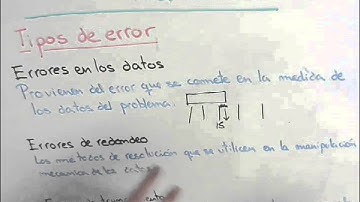 Tipos de error
Errores en los datos
Provienen del error que se comete en la medida
de los datos del problema.
15
Errores de redondeo
Los métodos de resolución que se utilicen en la manipulación
mecanica de los